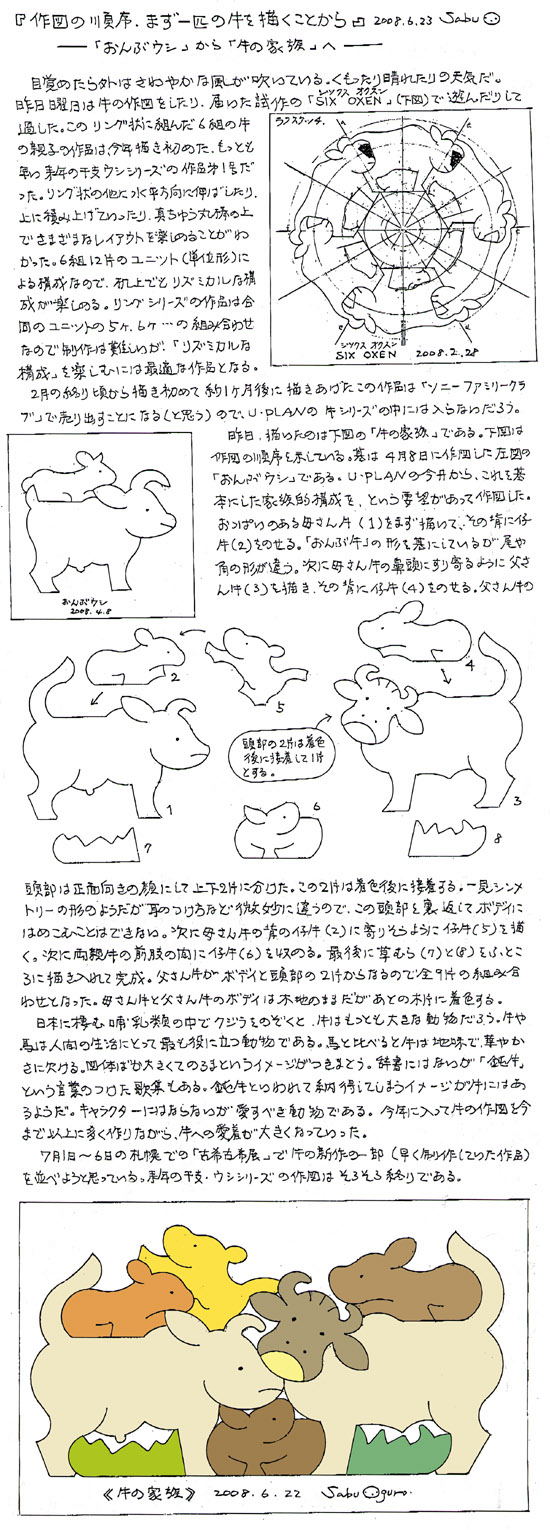 『作図の順序.まず一匹の牛を描くことから』2008.6.23 Sabu
──「おんぶウシ」から「牛の家族」へ──
目覚めたら外はさわやかな風が吹いている。くもったり晴れたりの天気だ。
昨日日曜日は牛の作図をしたり、届いた試作の「SIX OXEN」(下図)で遊んだりして
シックス オクスン
過した。このリング状に組んだ6組の牛
の親子の作品は、今年描き初めた、もっとも
早い来年の干支ウシシリーズの作品第1号だ
った。リング状の他に水平方向に伸ばしたり、
上に積み上げていったり、真ちゅう丸棒の上
でさまざまなレイアウトを楽しめることがわ
かった。6組12片のユニット(単位形)に
よる構成なので、机上でとリズミカルな構
成が楽しめる。リングシリーズの作品は合
同のユニットの5ヶ、6ヶ…の組み合わせ
なので制作は難しいが、「リズミカルな
構成」を楽しむには最適な作品となる。
シックス オクスン
SIX OXEN 2008.2.28
2月の終り頃から描き初めて約1ケ月後に描きあげたこの作品は「ソニーファミリークラ
ブ」で売り出すことになる(と思う)ので、U・PLANの牛シリーズの中には入らないだろう。
昨日、描いたのは下図の「牛の家族」である。下図は
作図の順序を示している。基は4月8日に作図した左図の
「おんぶウシ」である。U・PLANの今井から、これを基
本にした家族的構成を、という要望があって作図した。
おっぱいのある母さん牛(1)をまず描いて、その背に仔
牛(2)をのせる。「おんぶ牛」の形を基にしているが尾や
角の形が違う。次に母さん牛の鼻頭にすり寄るように父さ
ん牛(3)を描き、その背に仔牛(4)をのせる。父さん牛の
おんぶウシ
2008.4.8
2
5
4
頭部の2片は着色
後に接着して1片
とする。
1
6
3
7
8
頭部は正面向きの顔にして上下2片に分けた。この2片は着色後に接着する。一見シンメ
トリーの形のようだが耳のつけ方など微妙に違うので、この頭部を裏返してボディに
はめこむことはできない。次に母さん牛の背の仔牛(2)に寄りそうように仔牛(5)を描
く。次に両親牛の前股の間に仔牛(6)を収める。最後に草むら(7)と(8)をふとこ
ろに描き入れて完成。父さん牛がボディと頭部の2片からなるので全9片の組み合
わせとなった。母さん牛と父さん牛のボディは木地のままだがあとの木片に着色する。
日本に棲む哺乳類の中でクジラをのぞくと、牛はもっとも大きな動物だろう。牛や
馬は人間の生活にとって最も役に立つ動物である。馬と比べると牛は地味で、華やか
さに欠ける。図体ばか大きくてのろまというイメージがつきまとう。辞書にはないが「鈍牛」
という言葉のつけた歌集もある。鈍牛といわれて納得してしまうイメージが牛にはあ
るようだ。キャラクターにはならないが愛すべき動物である。今年に入って牛の作図を今
まで以上に多く作りながら、牛への愛着が大きくなっていった。
7月1日〜6日の札幌での「古希古布展」で牛の新作の一部(早く制作していた作品)
を並べようと思っている。来年の干支・ウシシリーズの作図はそろそろ終りである。
《牛の家族》 2008.6.22 Sabu Oguro.